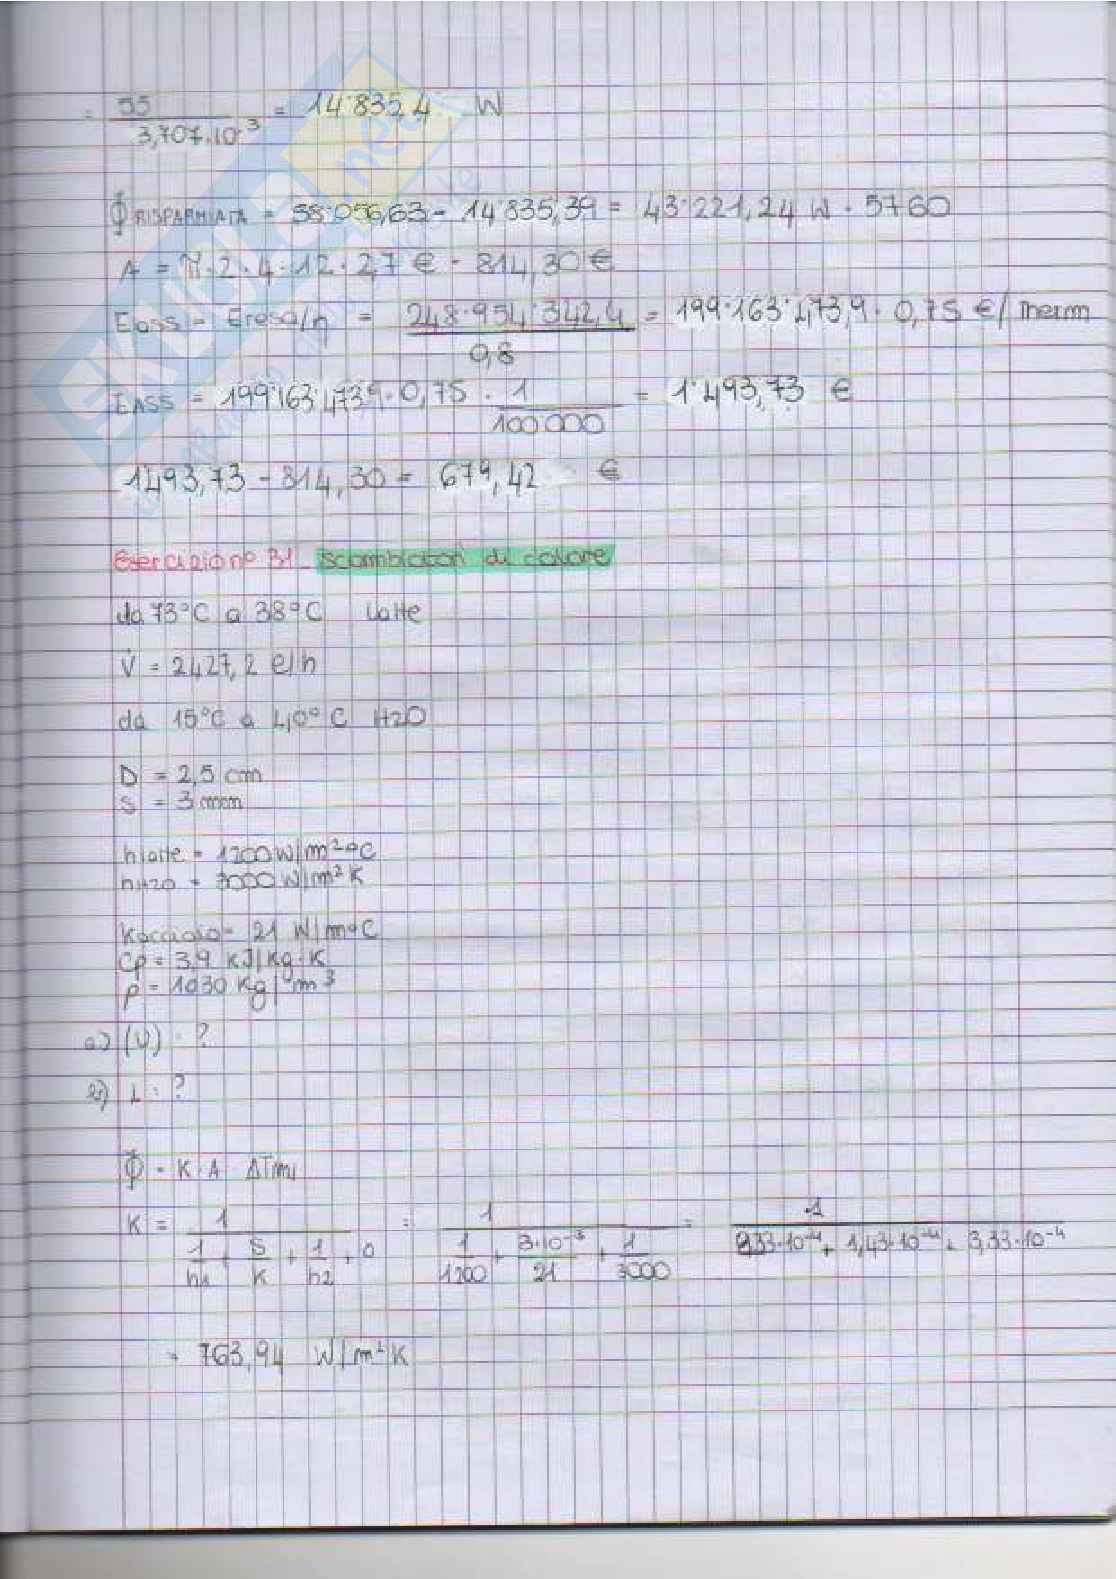 = 55 / 3,707·10⁻³ = 14·835,4 W
Φ RISPARMIATA = 58·056,63 - 14·835,39 = 43·221,24 W · 5760
A = π·2·4·12·2,7 € = 814,30 €
Eass = Eresa/η = 248·954·342,4 / 0,8 = 199·163·473,9 · 0,75 €/Therm
EASS = 199·163·473,9 · 0,75 · 1 / 100 000 = 1·493,73 €
1493,73 - 814,30 = 679,42 €
Esercizio n° 31 scambiatori di calore
da 73°C a 38°C latte
V̇ = 2427,2 l/h
da 15°C a 40°C H2O
D = 2,5 cm
S = 3 mm
hlatte = 1200 W/m²°C
hH2O = 3000 W/m² K
Kacciaio = 21 W/m°C
Cp = 3,9 KJ/Kg·K
ρ = 1030 Kg/m³
a) (U) = ?
b) L = ?
Φ = K·A ΔTml
K = 1 / (1/h1 + S/K + 1/h2 + 0) = 1 / (1/1200 + 3·10⁻³/21 + 1/3000) = 1 / (8,33·10⁻⁴ + 1,43·10⁻⁴ + 3,33·10⁻⁴)
= 763,94 W/m² K